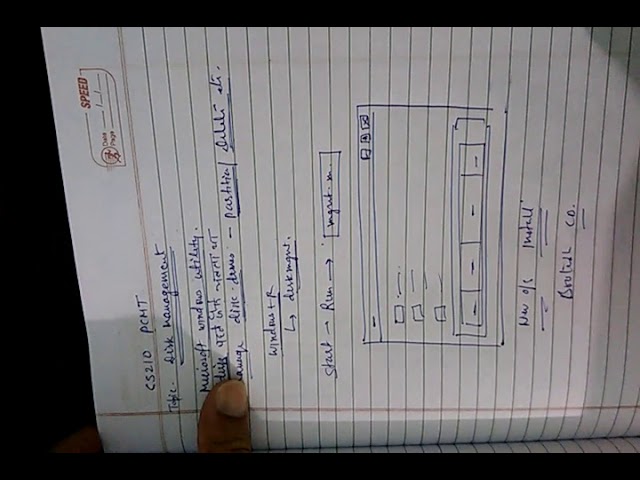 SPEED
Date
Page
CS210 PCMT
Topic - Disk management
Microsoft window utility.
disc drives - partition / delete etc.
Window + R
↳ diskmgmt.
Start → Run → mgmt.m.
New o/s Install